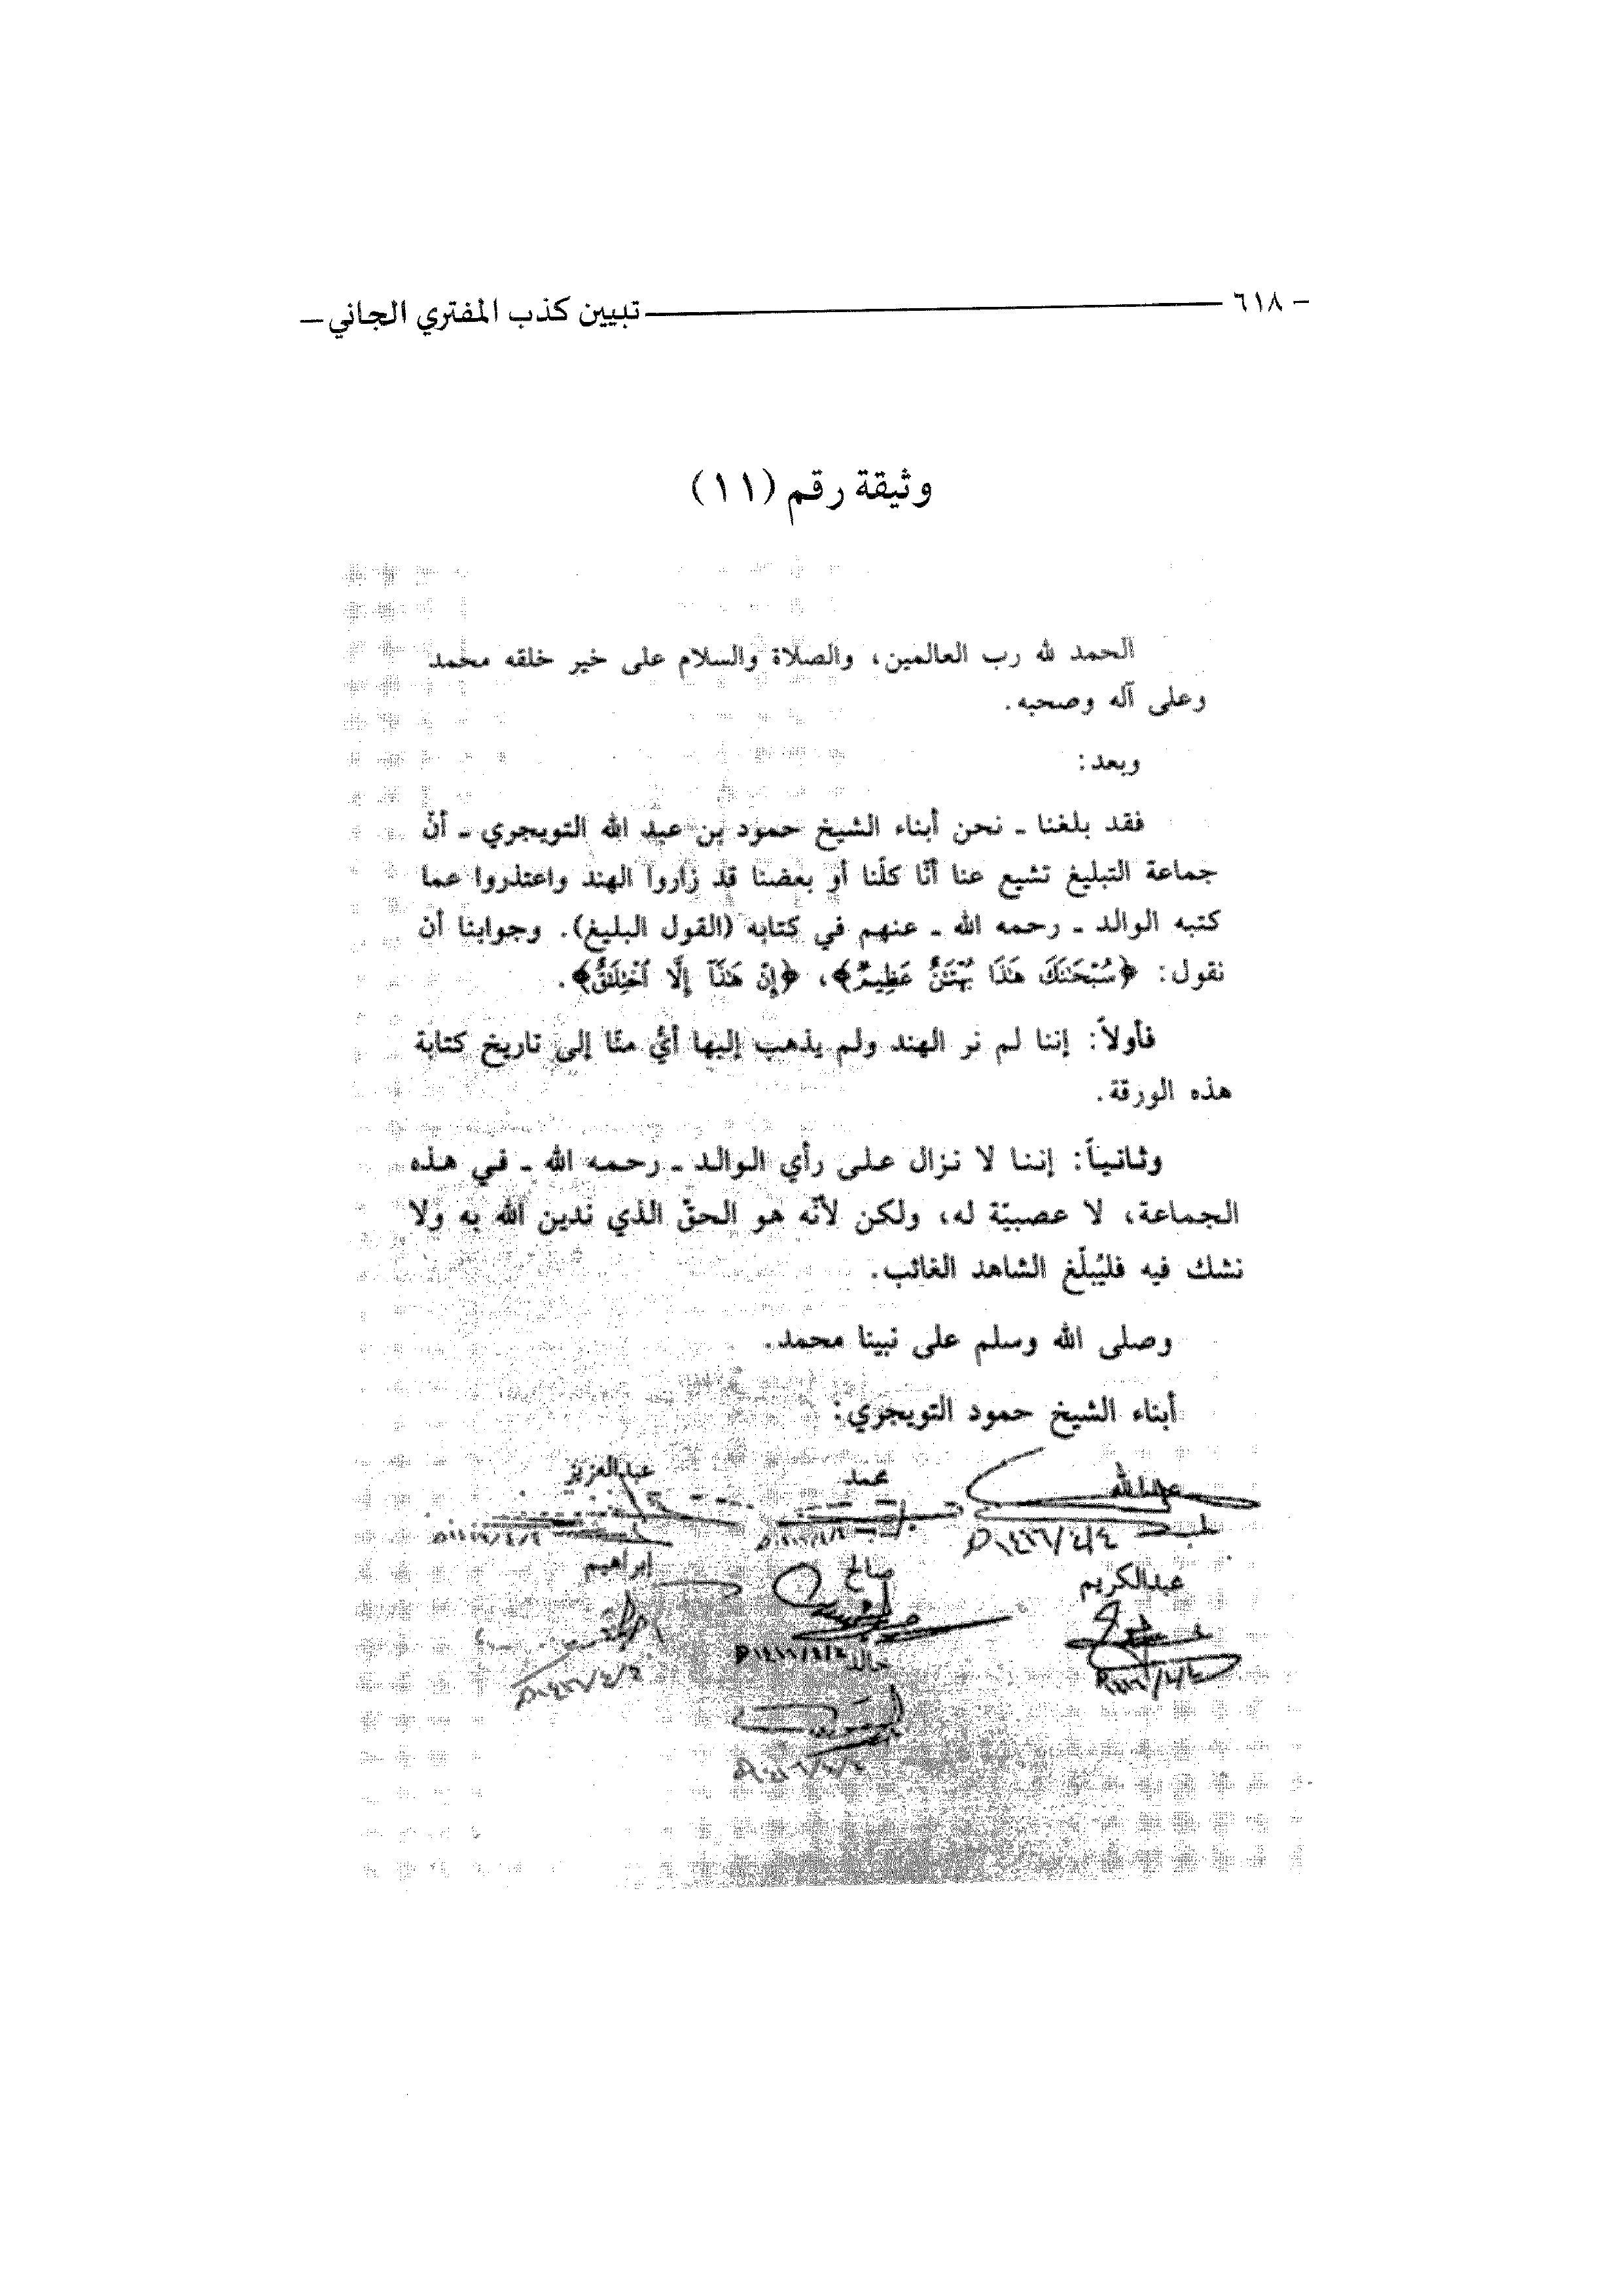 - ٦١٨ تبيين كذب المفتري الجاني -
وثيقة رقم (١١)
الحمد لله رب العالمين، والصلاة والسلام على خير خلقه محمد
وعلى آله وصحبه.
وبعد:
فقد بلغنا ـ نحن أبناء الشيخ حمود بن عبد الله التويجري ـ أنّ
جماعة التبليغ تشيع عنا أنّا كلّنا أو بعضنا قد زاروا الهند واعتذروا عما
كتبه الوالد ـ رحمه الله ـ عنهم في كتابه (القول البليغ). وجوابنا أن
نقول: ﴿سُبْحَٰنَكَ هَٰذَا بُهْتَٰنٌ عَظِيمٌ﴾، ﴿إِنْ هَٰذَآ إِلَّا ٱخْتِلَٰقٌ﴾.
فأولاً: إننا لم نر الهند ولم يذهب إليها أيٌّ منّا إلى تاريخ كتابة
هذه الورقة.
وثانياً: إننا لا نزال على رأي الوالد ـ رحمه الله ـ في هذه
الجماعة، لا عصبيّة له، ولكن لأنّه هو الحقّ الذي ندين الله به ولا
نشك فيه فليُبلّغ الشاهد الغائب.
وصلى الله وسلم على نبينا محمد.
أبناء الشيخ حمود التويجري:
عبدالله محمد عبدالعزيز
١٤١٦/٤/٤هـ
عبدالكريم صالح إبراهيم
خالد